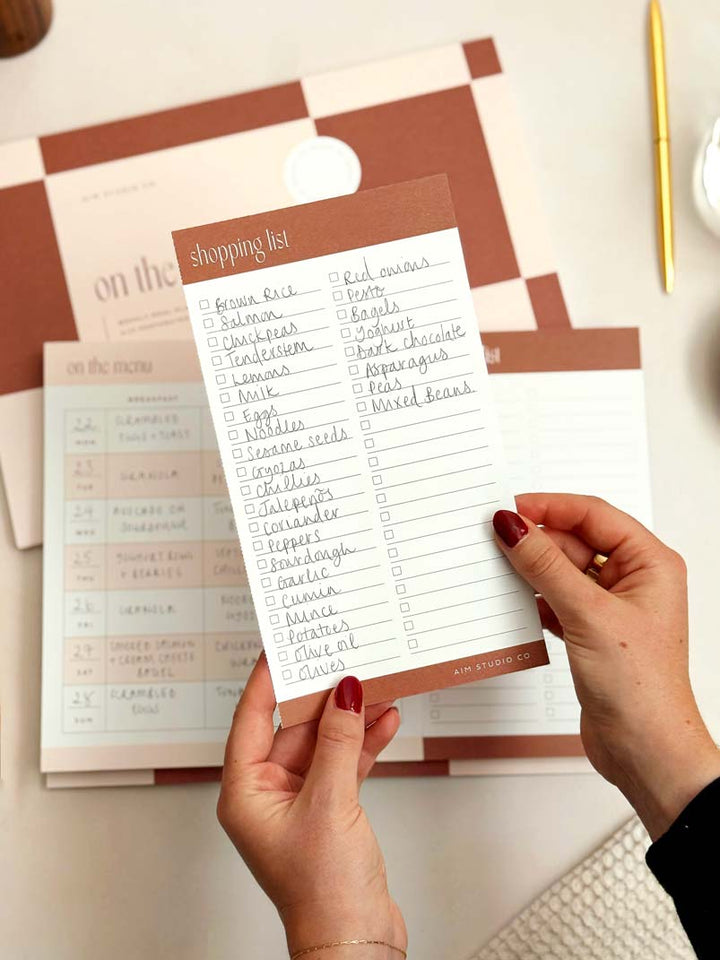 AIM STUDIO CO
on the
shopping list
Brown Rice
Salmon
Chickpeas
Tenderstem
Lemons
Milk
Eggs
Noodles
Sesame seeds
Gyozas
Chillies
Jalepeños
Coriander
Peppers
Sourdough
Garlic
Cumin
Mince
Potatoes
Olive oil
Olives
Red onions
Pesto
Bagels
Yoghurt
Dark chocolate
Asparagus
Peas
Mixed Beans
AIM STUDIO CO
on the menu
BREAKFAST
22 SCRAMBLED
MON EGGS + TOAST
23 GRANOLA
TUE
24 AVOCADO ON
WED SOURDOUGH
25 YOGHURT BOWL
THU + BERRIES
26 GRANOLA
FRI
27 SMOKED SALMON
SAT + CREAM CHEESE
BAGEL
28 SCRAMBLED
SUN EGGS